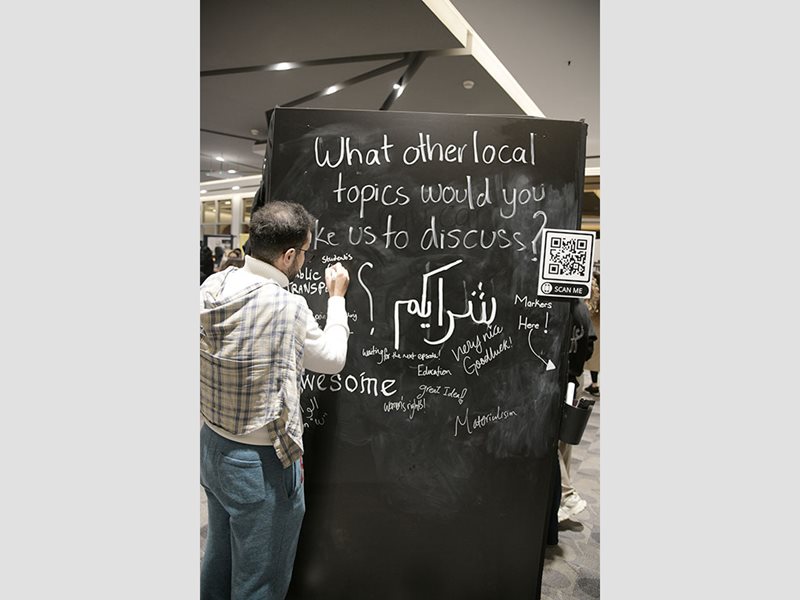 What other local
topics would you
ke us to discuss?
Students
BLIC
TRANSP
شرايكم ؟
SCAN ME
Markers
Here!
Waiting for the next episode!
Very nice
Goodluck!
Education
wesome
great Idea!
women's rights!
Materialism